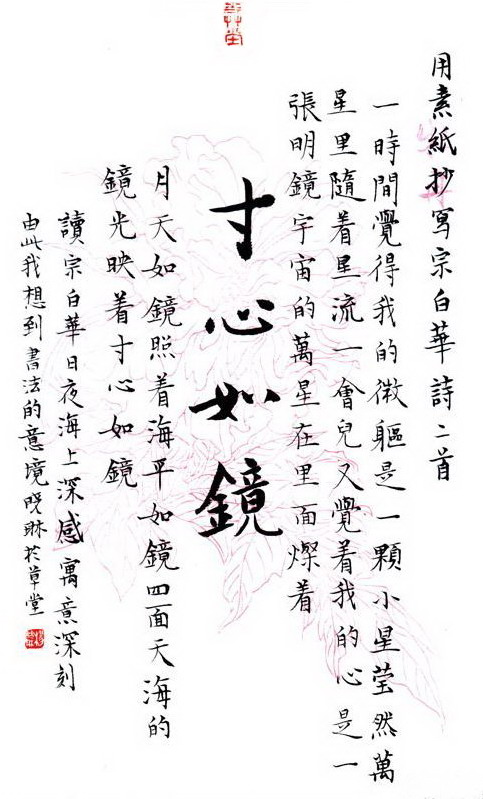 用素紙抄寫宗白華詩二首
一時間覺得我的微軀是一顆小星莹然萬
星里隨着星流一會兒又覺着我的心是一
張明鏡宇宙的萬星在里面燦着
寸心如鏡
月天如鏡照着海平如鏡四面天海的
鏡光映着寸心如鏡
讀宗白華日夜海上深感寓意深刻
由此我想到書法的意境晓琳於草堂